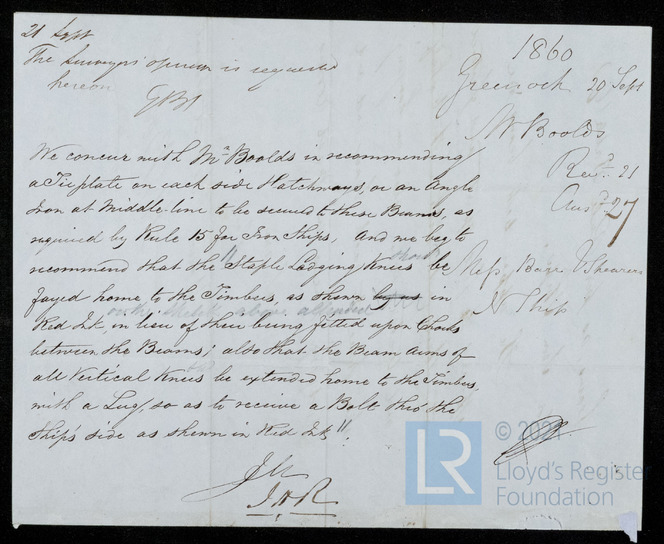 21 Sept
The Surveyors' opinion is requested
hereon
GBS
We concur with Mr. Boolds in recommending
a Tieplate on each side Hatchways, or an Angle
Iron at Middle line to be secured to these Beams, as
required by Rule 15 for Iron Ships, And we beg to
recommend that the "Staple Lodging Knees should be
fayed home to the Timbers, as shewn by us in
on the sketch above alluded
Red Ink, in lieu of their being fitted upon Chocks
between the Beams; also that the Beam Arms of
all Vertical Knees be extended home to the Timbers,
with a Lug, so as to receive a Bolt thro' the
Ship's side as shewn in Red Ink".
JM
J.H.R
1860
Greenock 20 Sept
Mr Boolds
Recd. 21
Ansd 27
Mess
N Ship
© 202
LR
Lloyd's Register
Foundation